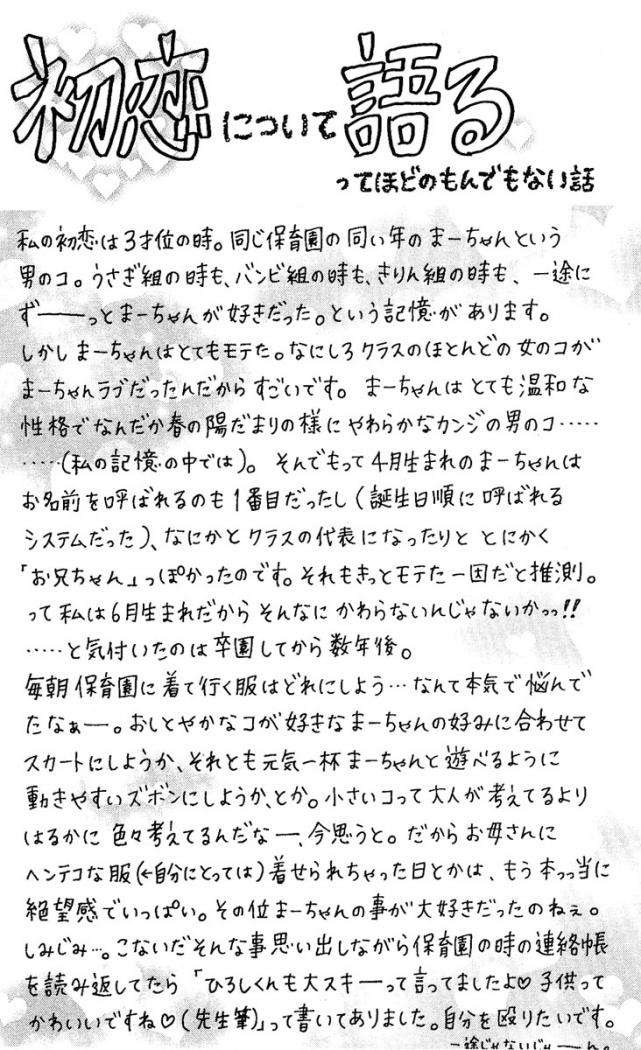 初恋について語る
ってほどのもんでもない話
私の初恋は3才位の時。同じ保育園の同い年のまーちゃんという
男のコ。うさぎ組の時も、バンビ組の時も、きりん組の時も、一途に
ず───っとまーちゃんが好きだった。という記憶があります。
しかしまーちゃんはとてもモテた。なにしろクラスのほとんどの女のコが
まーちゃんラブだったんだからすごいです。まーちゃんはとても温和な
性格でなんだか春の陽だまりの様にやわらかなカンジの男のコ……
……(私の記憶の中では)。そんでもって4月生まれのまーちゃんは
お名前を呼ばれるのも1番目だったし(誕生日順に呼ばれる
システムだった)、なにかとクラスの代表になったりと とにかく
「お兄ちゃん」っぽかったのです。それもきっとモテた一因だと推測。
って私は6月生まれだからそんなにかわらないんじゃないかっっ!!
……と気付いたのは卒園してから数年後。
毎朝保育園に着て行く服はどれにしよう…なんて本気で悩んで
たなぁー。おしとやかなコが好きなまーちゃんの好みに合わせて
スカートにしようか、それとも元気一杯まーちゃんと遊べるように
動きやすいズボンにしようか、とか。小さいコって大人が考えてるより
はるかに色々考えてるんだなー、今思うと。だからお母さんに
ヘンテコな服(←自分にとっては)着せられちゃった日とかは、もう本っっ当に
絶望感でいっぱい。その位まーちゃんの事が大好きだったのねぇ。
しみじみ…。こないだそんな事思い出しながら保育園の時の連絡帳
を読み返してたら「ひろしくんも大スキーって言ってましたよ♡子供って
かわいいですね♡(先生筆)」って書いてありました。自分を殴りたいです。
一途じゃないじゃーん。